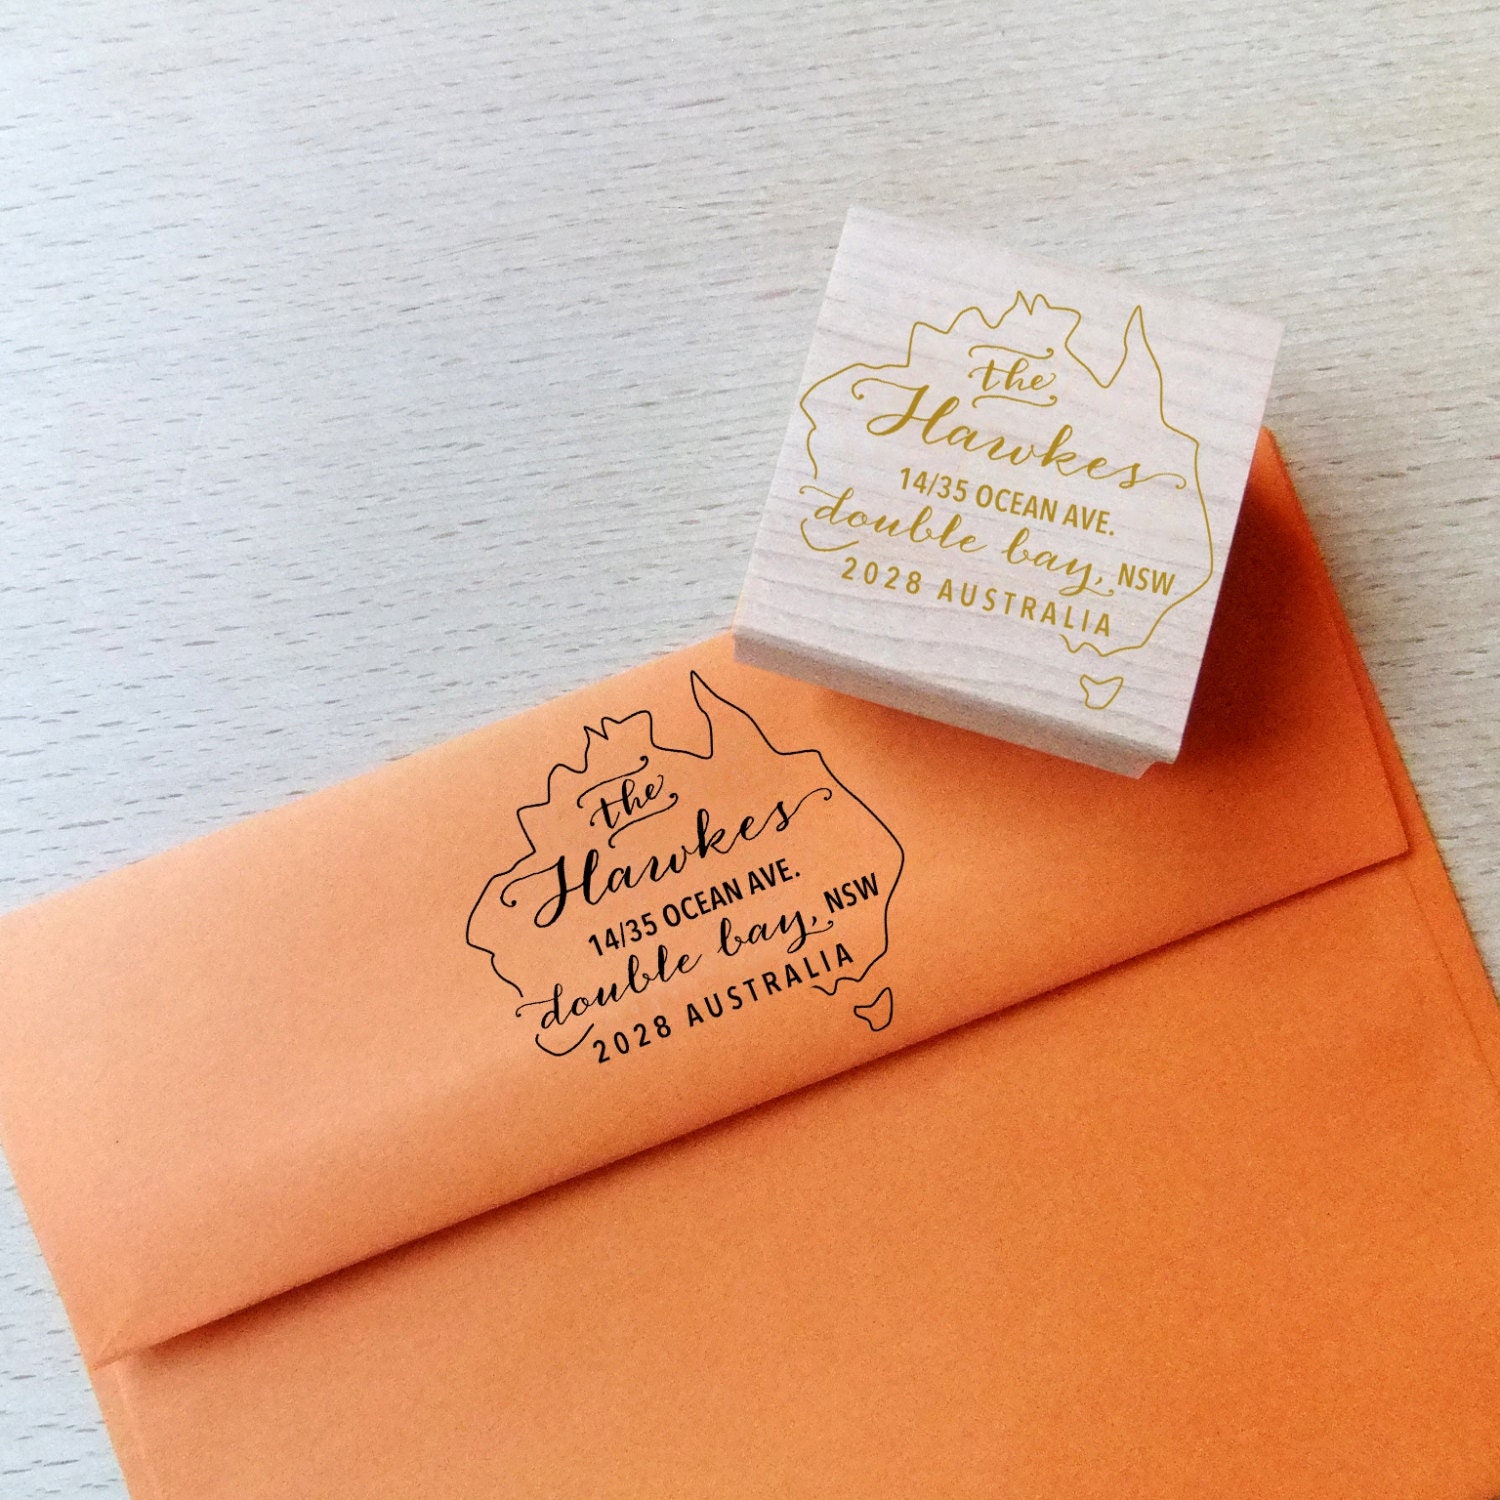 the
Hawkes
14/35 OCEAN AVE.
double bay, NSW
2028 AUSTRALIA
the
Hawkes
14/35 OCEAN AVE.
double bay, NSW
2028 AUSTRALIA